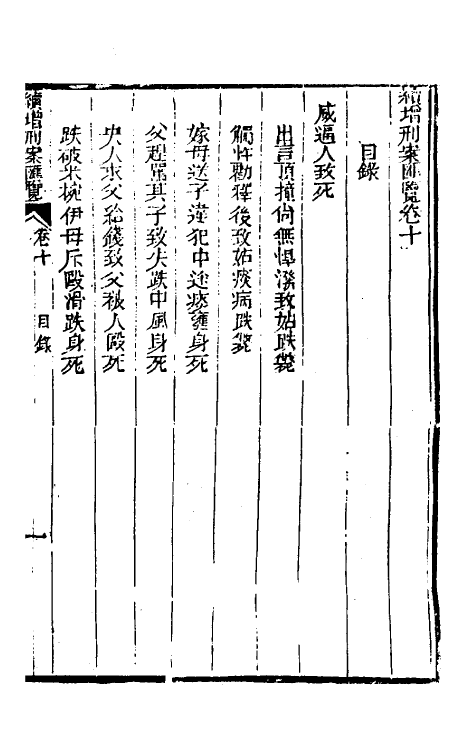 續增刑案匯覽卷十
目錄
威逼人致死
出言頂撞尚無悍潑致姑跌斃
觸忤勸釋後致姑痰病跌斃
嫁母送子違犯中途痰壅身死
父趕毆其子致失跌中風身死
央人求父給錢致父被人毆死
跌破米椀伊母斥毆滑跌身死
續增刑案匯覽 卷十 目錄 一